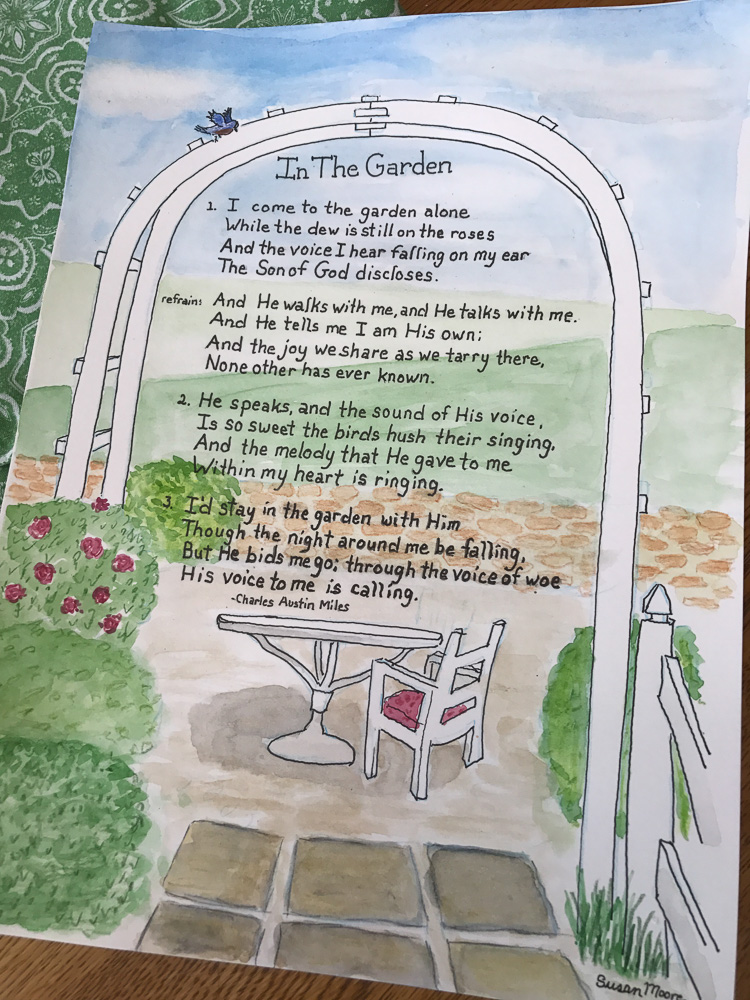 In The Garden
1. I come to the garden alone
While the dew is still on the roses
And the voice I hear falling on my ear
The Son of God discloses.
refrain: And He walks with me, and He talks with me.
And He tells me I am His own;
And the joy we share as we tarry there,
None other has ever known.
2. He speaks, and the sound of His voice,
Is so sweet the birds hush their singing,
And the melody that He gave to me
Within my heart is ringing.
3. I'd stay in the garden with Him
Though the night around me be falling,
But He bids me go; through the voice of woe
His voice to me is calling.
-Charles Austin Miles
Susan Moore